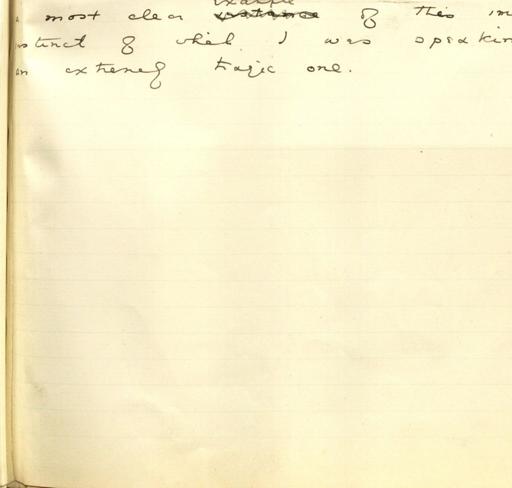 example
a most clear instance of this in
stinct of which I was speakin
an extremely tragic one.